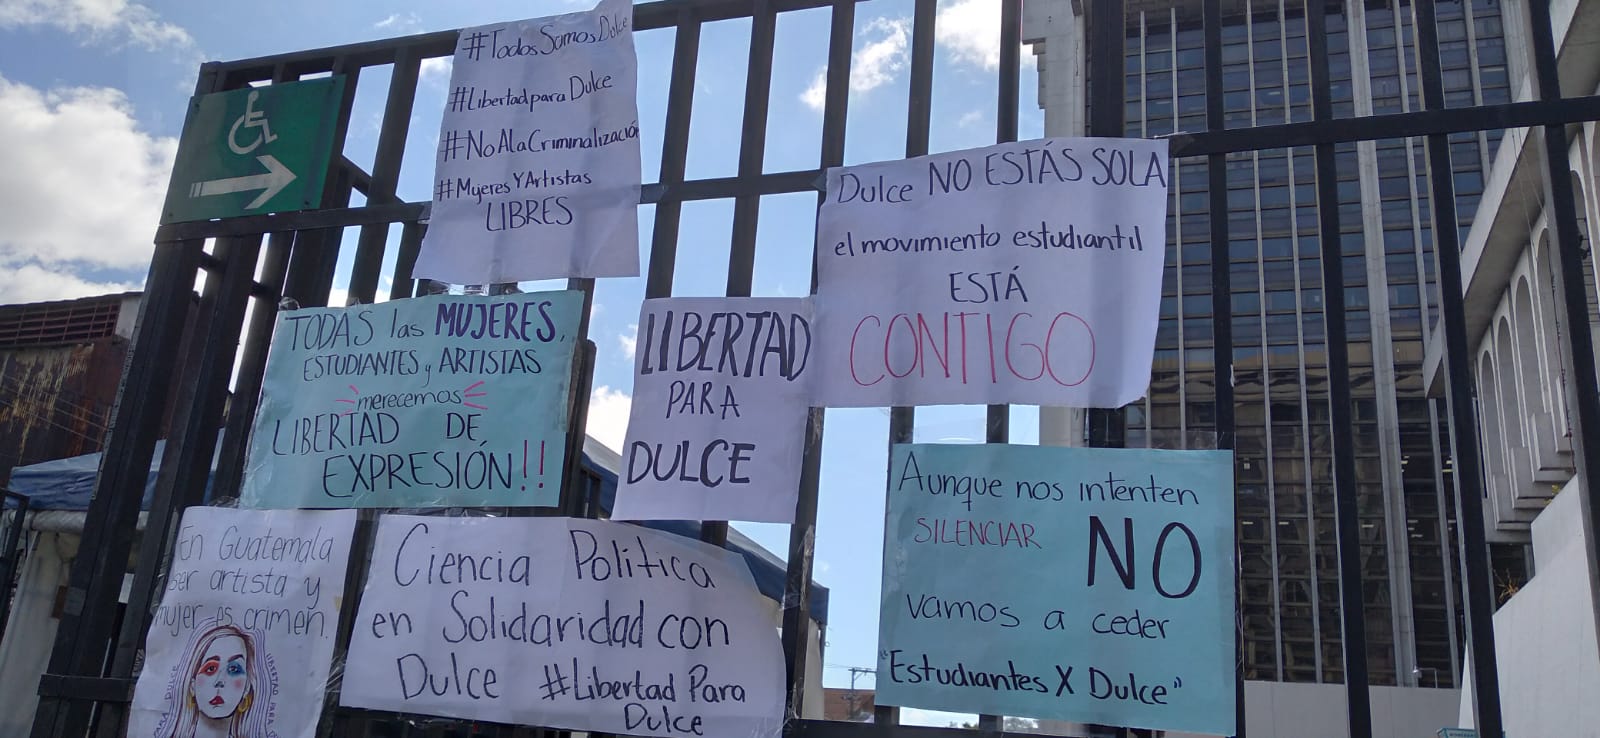 #TodosSomosDulce
#LibertadparaDulce
#NoAlaCriminalización
#MujeresYArtistas
LIBRES
Dulce NO ESTÁS SOLA
el movimiento estudiantil
ESTÁ
CONTIGO
TODAS las MUJERES,
ESTUDIANTES y ARTISTAS
merecemos
LIBERTAD DE
EXPRESIÓN!!
LIBERTAD
PARA
DULCE
Aunque nos intenten
SILENCIAR NO
vamos a ceder
"Estudiantes X Dulce"
En Guatemala
ser artista y
mujer es crimen.
PARA DULCE
LIBERTAD PARA
Ciencia Política
en Solidaridad con
Dulce #Libertad Para
Dulce